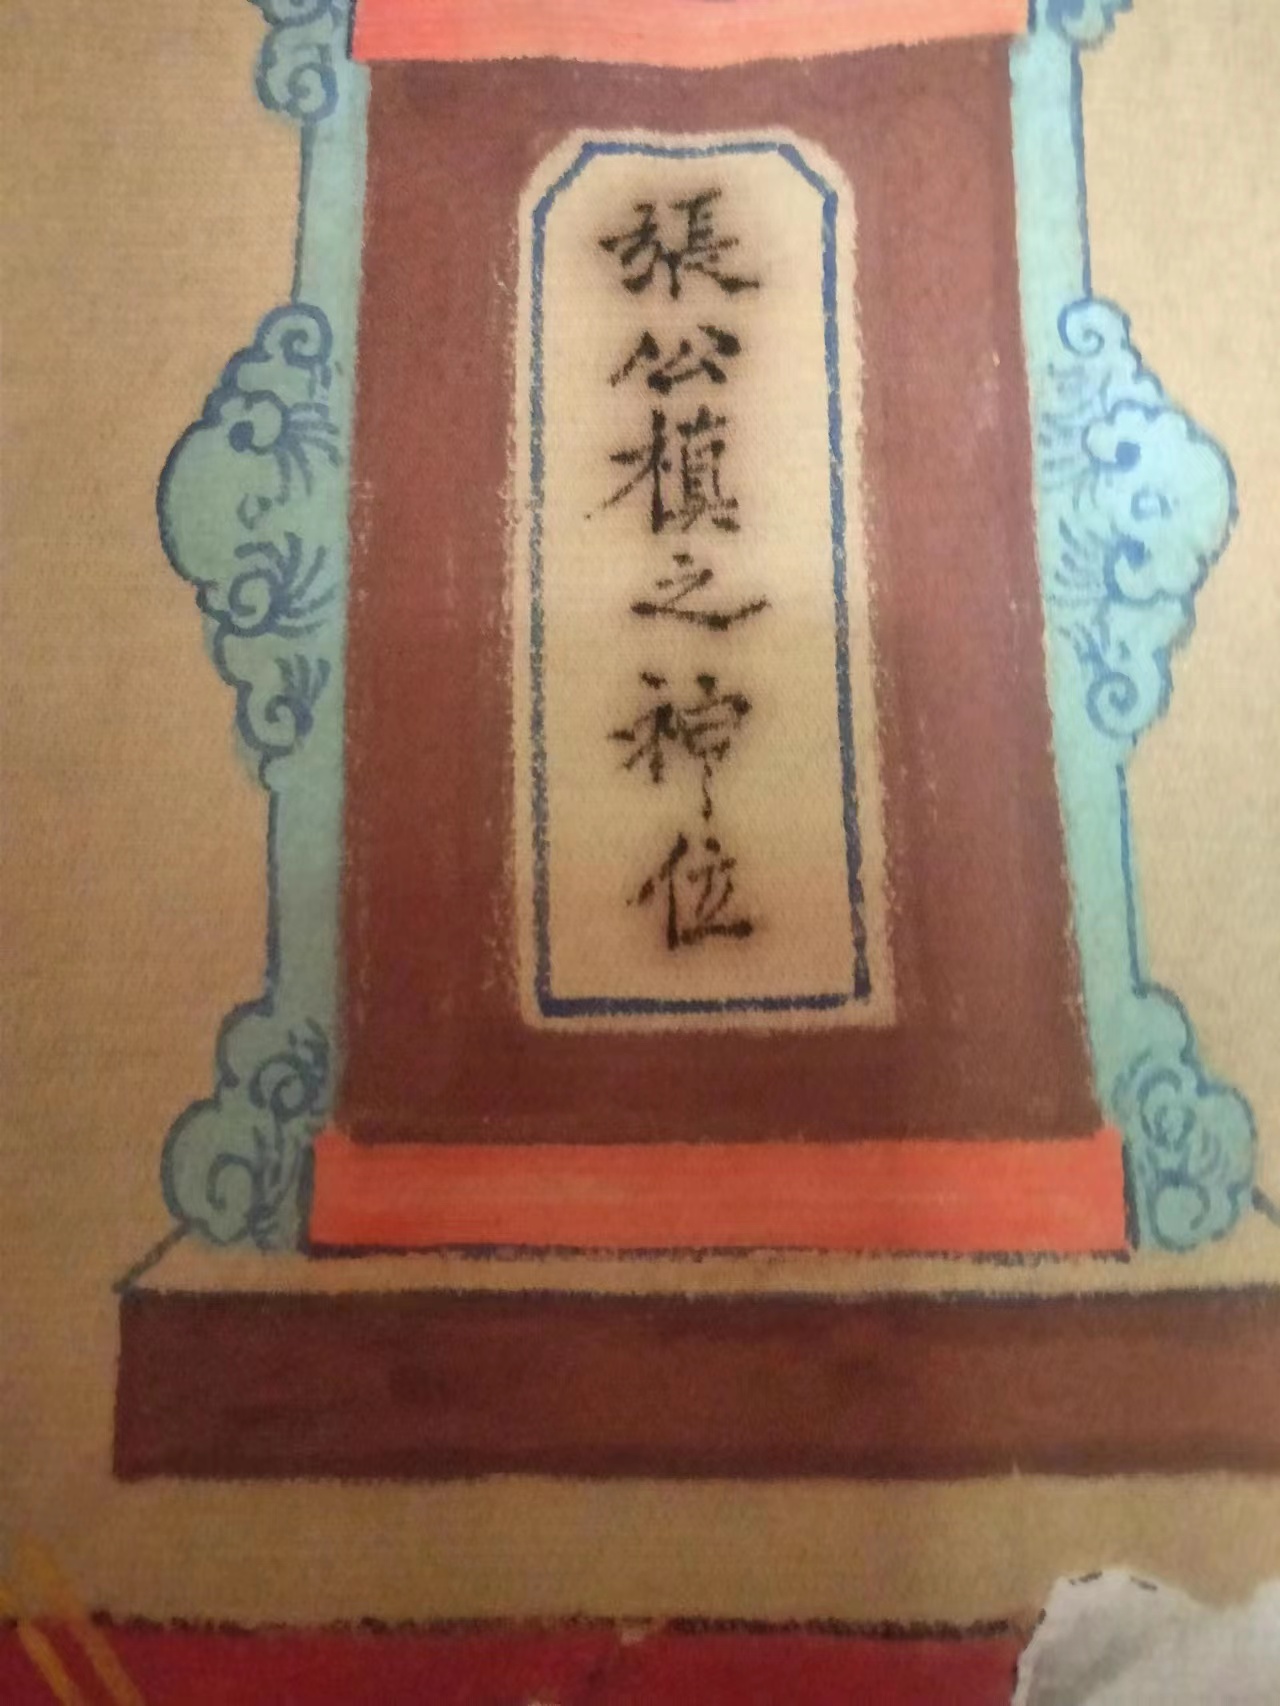 張公槙之神位